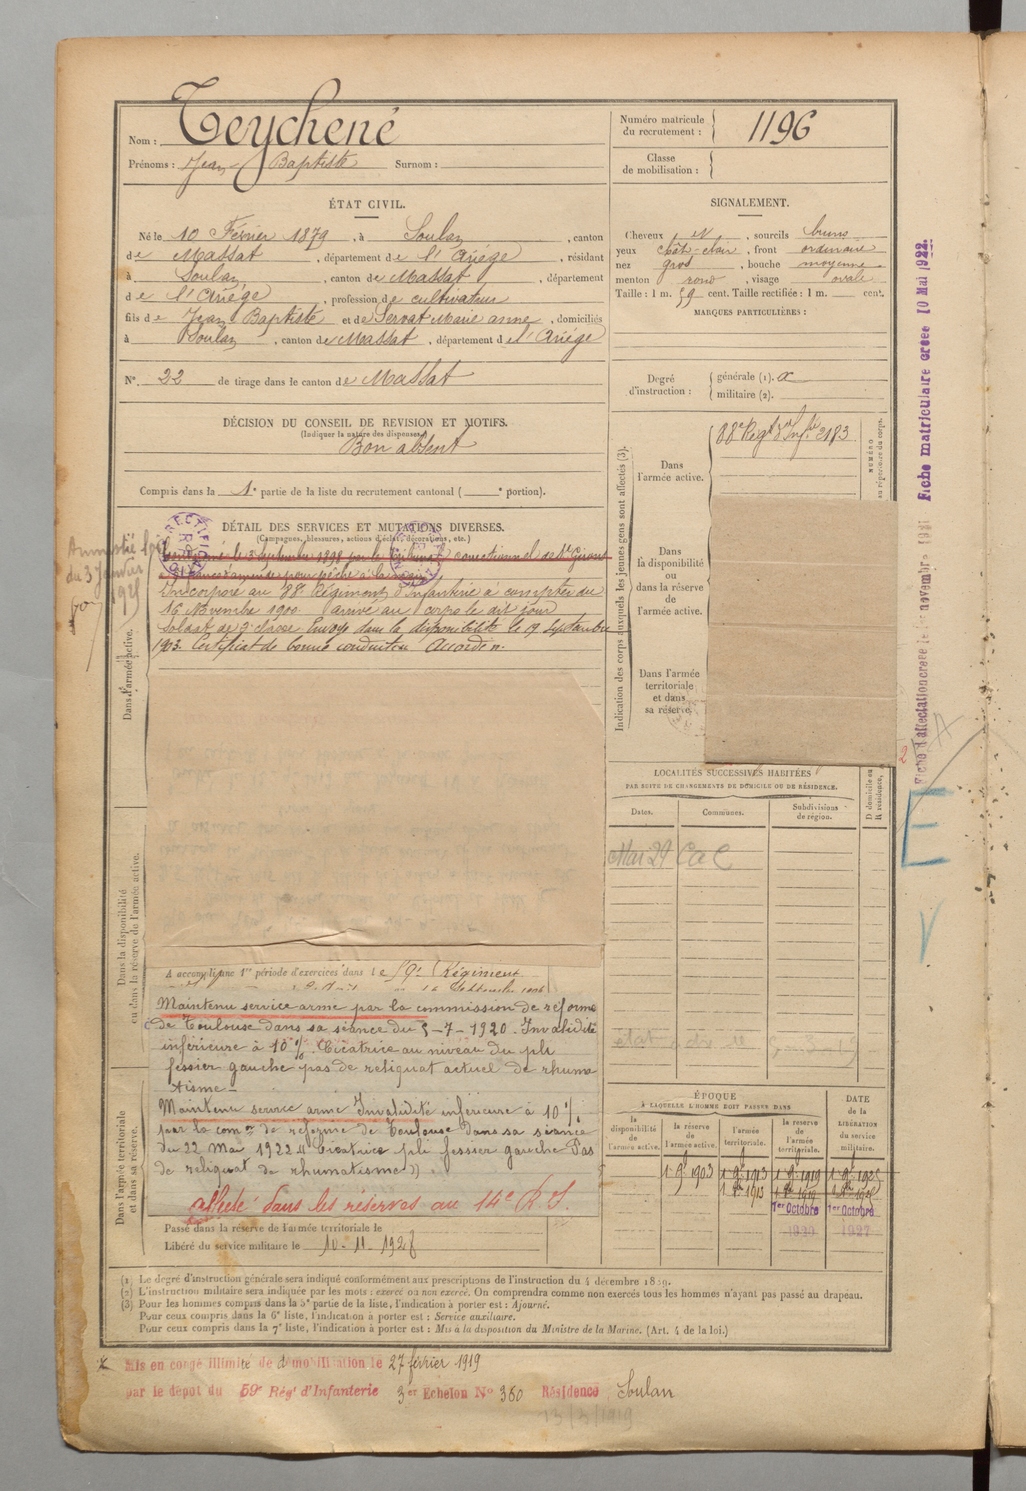 Nom : Teychené
Prénoms : Jean Baptiste Surnom :
Numéro matricule du recrutement : 1196
Classe de mobilisation :
ÉTAT CIVIL.
Né le 10 Février 1879, à Soulan, canton
de Massat, département de l'Ariège, résidant
à Soulan, canton de Massat, département
de l'Ariège, profession de cultivateur
fils de Jean Baptiste et de Servat Marie anne, domiciliés
à Soulan, canton de Massat, département de l'Ariège
N° 22 de tirage dans le canton de Massat
SIGNALEMENT.
Cheveux N, sourcils bruns
yeux chât-clair, front ordinaire
nez gros, bouche moyenne
menton rond, visage ovale
Taille : 1 m. 59 cent. Taille rectifiée : 1 m. cent.
MARQUES PARTICULIÈRES :
Degré d'instruction : générale (1).
militaire (2).
DÉCISION DU CONSEIL DE REVISION ET MOTIFS.
(Indiquer la nature des dispenses.)
Bon absent
Compris dans la 1e partie de la liste du recrutement cantonal ( e portion).
DÉTAIL DES SERVICES ET MUTATIONS DIVERSES.
(Campagnes, blessures, actions d'éclat, décorations, etc.)
Amnistié Loi
du 3 Janvier
1925
le 3 septembre 1898 par le tribunal correctionnel de St Girons
amende pour pêche à la main
Incorporé au 88e Régiment d'Infanterie à compter du
16 Novembre 1900 arrivé au corps le dit jour
Soldat de 2e classe Envoyé dans la disponibilité le 19 Septembre
1903. Certificat de bonne conduite Accordé.
Dans l'armée active.
Dans la disponibilité ou dans la réserve de l'armée active.
Dans l'armée territoriale et dans sa réserve.
A accompli une 1re période d'exercices dans le 59e Régiment
Maintenu service armé par la commission de réforme
de Toulouse dans sa séance du 5-7-1920. Invalidité
inférieure à 10%. Cicatrice au niveau du pli
fessier gauche pas de reliquat actuel de rhuma
tisme -
Maintenu service armé Invalidité inférieure à 10%
par la comon de réforme de Toulouse dans sa séance
du 22 Mai 1922 « Cicatrice pli fessier gauche Pas
de reliquat de rhumatisme »
affecté dans les réserves au 14e R I.
Passé dans la réserve de l'armée territoriale le
Libéré du service militaire le 10-11-1928
Indication des corps auxquels les jeunes gens sont affectés (3).
Dans l'armée active.
88e Régt d'Infie 2183
Dans la disponibilité ou dans la réserve de l'armée active.
Dans l'armée territoriale et dans sa réserve
LOCALITÉS SUCCESSIVES HABITÉES
PAR SUITE DE CHANGEMENTS DE DOMICILE OU DE RÉSIDENCE.
Dates. Communes. Subdivisions de région. D domicile ou R résidence.
Mai 29
ÉPOQUE
À LAQUELLE L'HOMME DOIT PASSER DANS
la disponibilité de l'armée active.
la réserve de l'armée active.
l'armée territoriale.
la réserve de l'armée territoriale.
DATE de la LIBÉRATION du service militaire.
1 9bre 1903 1 9bre 1913 1 9bre 1919 1 9bre 1925
1er Octobre 1er Octobre
1927
Fiche matriculaire créée 10 Mai 1922.
E
(1) Le degré d'instruction générale sera indiqué conformément aux prescriptions de l'instruction du 4 décembre 1889.
(2) L'instruction militaire sera indiquée par les mots : exercé ou non exercé. On comprendra comme non exercés tous les hommes n'ayant pas passé au drapeau.
(3) Pour les hommes compris dans la 5e partie de la liste, l'indication à porter est : Ajourné.
Pour ceux compris dans la 6e liste, l'indication à porter est : Service auxiliaire.
Pour ceux compris dans la 7e liste, l'indication à porter est : Mis à la disposition du Ministre de la Marine. (Art. 4 de la loi.)
Mis en congé illimité de démobilisation le 27 février 1919
par le dépôt du 59e Régt d'Infanterie 3er Echelon N° 360 Résidence Soulan
13/3/1919